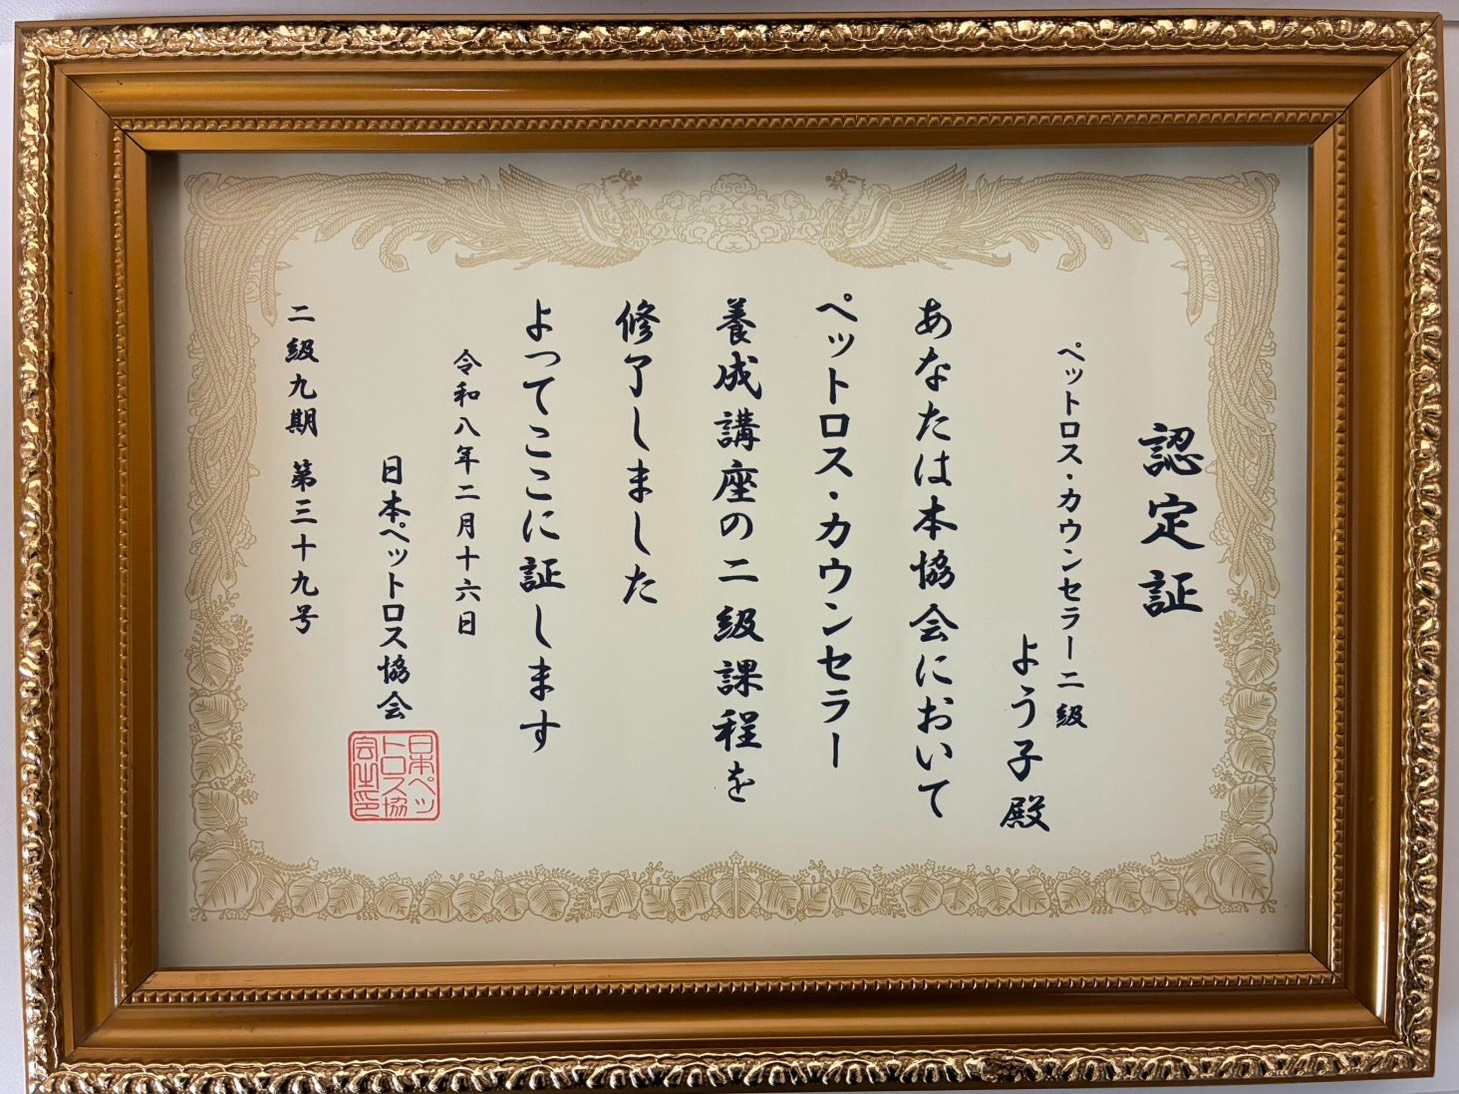 認定証
ペットロス・カウンセラー二級
よう子殿
あなたは本協会において
ペットロス・カウンセラー
養成講座の二級課程を
修了しました
よってここに証します
令和八年二月十六日
日本ペットロス協会
日本ペッ
トロス協
会之印
二級九期 第三十九号